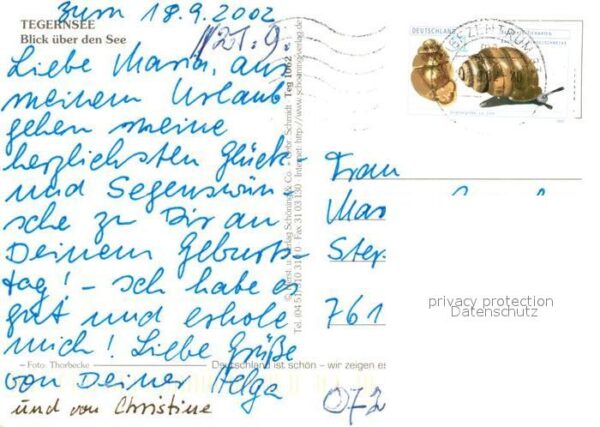 TEGERNSEE
Blick über den See
zum 18.9.2002
Liebe Maria, aus
meinem Urlaub
gehen meine
herzlichsten Glück-
und Segenswün-
sche zu Dir an
Deinem Geburts-
tag! - Ich habe es
gut und erhole
mich! Liebe Grüße
von Deiner Helga
und von Christine
Foto: Thorbecke
Deutschland ist schön – wir zeigen es
Teg 1062
Internet: http://www.schoening-verlag.de
DEUTSCHLAND
Frau
Mar
Step
761
privacy protection
Datenschutz
072